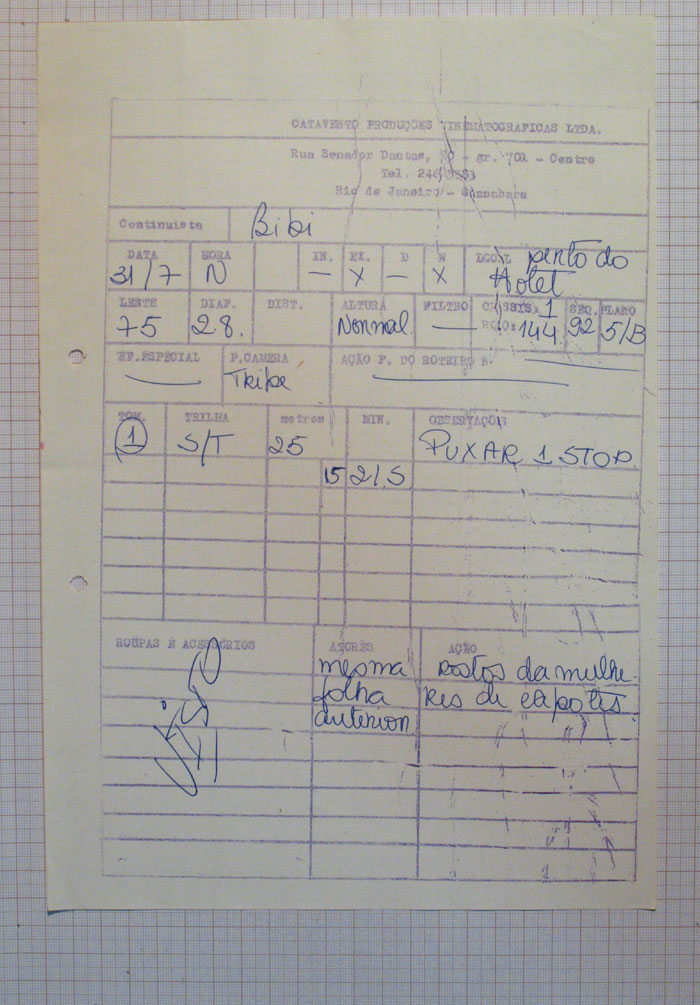 CATAVENTO PRODUÇÕES CINEMATOGRAFICAS LTDA.
Rua Senador Dantas, 20 - gr. 701 - Centro
Tel. 246
Rio de Janeiro - Guanabara
Continuista Bibi
DATA HORA IN. EX. D N LOCAL pento do
31/7 N — X — X Hotel
LENTE DIAF. DIST. ALTURA FILTRO CHASSIS: 1 SEQ. PLANO
75 2.8. Normal — ROLO: 144 92 5/B
EF.ESPECIAL P.CAMERA AÇÃO F. DO ROTEIRO
Tripe
TOM. TRILHA metros MIN. OBSERVAÇÕES
1 S/T 25 PUXAR 1 STOP
15 21S
ROUPAS E ACESSÓRIOS ATORES AÇÃO
mesma rostos da mulhe-
folha res de capotes.
anterior